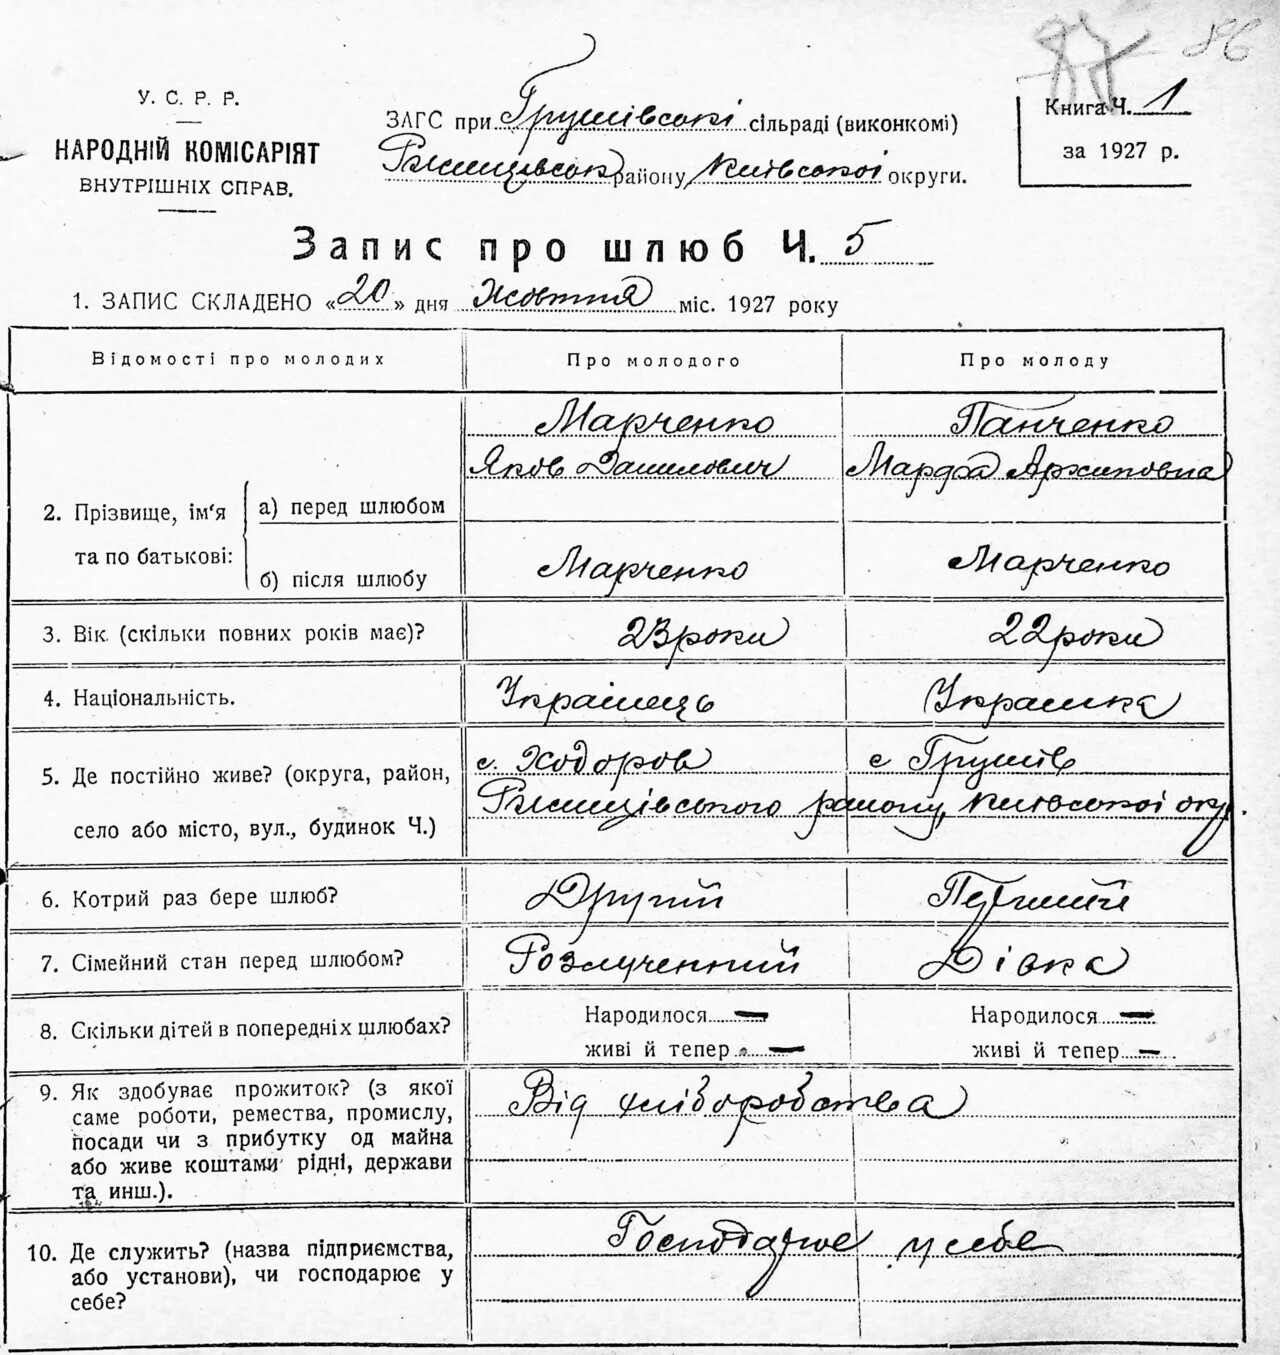 87 86
У. С. Р. Р.
НАРОДНІЙ КОМІСАРІЯТ
ВНУТРІШНІХ СПРАВ.
ЗАГС при Грушівські сільраді (виконкомі)
Ржищівськ району Київської округи.
Книга Ч. 1
за 1927 р.
Запис про шлюб Ч. 5
1. ЗАПИС СКЛАДЕНО «20» дня Жовтня міс. 1927 року
Відомості про молодих Про молодого Про молоду
Марченко Панченко
Яков Данилович Марфа Архиповна
2. Прізвище, ім'я та по батькові:
а) перед шлюбом
б) після шлюбу
Марченко Марченко
3. Вік (скільки повних років має)? 23 роки 22 роки
4. Національність. Українець Українка
5. Де постійно живе? (округа, район,
село або місто, вул., будинок Ч.)
с. Ходоров с Грушів
Ржищівського району, Київської окр.
6. Котрий раз бере шлюб? Другий Перший
7. Сімейний стан перед шлюбом? Розлученний Дівка
8. Скільки дітей в попередніх шлюбах?
Народилося — Народилося —
живі й тепер — живі й тепер —
9. Як здобуває прожиток? (з якої
саме роботи, ремества, промислу,
посади чи з прибутку од майна
або живе коштами рідні, держави
та инш.).
Від хліборобства
10. Де служить? (назва підприємства,
або установи), чи господарює у
себе?
Господарює у себе